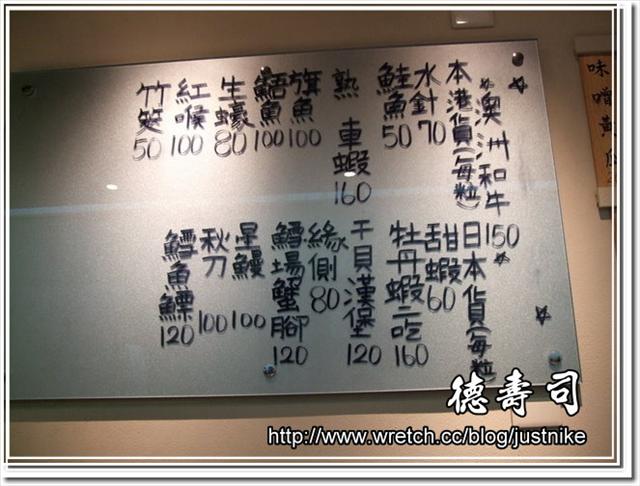 ☆澳洲和牛150☆
本港貨(每粒)
水針70
鮭魚50
熟車蝦160
旗魚100
鯃魚100
生蠔80
紅喉100
竹筴50
日本貨(每粒)
甜蝦60
牡丹蝦二吃160
干貝漢堡120
緣側80
鱈場蟹腳120
星鰻100
秋刀100
鱈魚鰾120
味噌黃瓜
德壽司
http://www.wretch.cc/blog/justnike